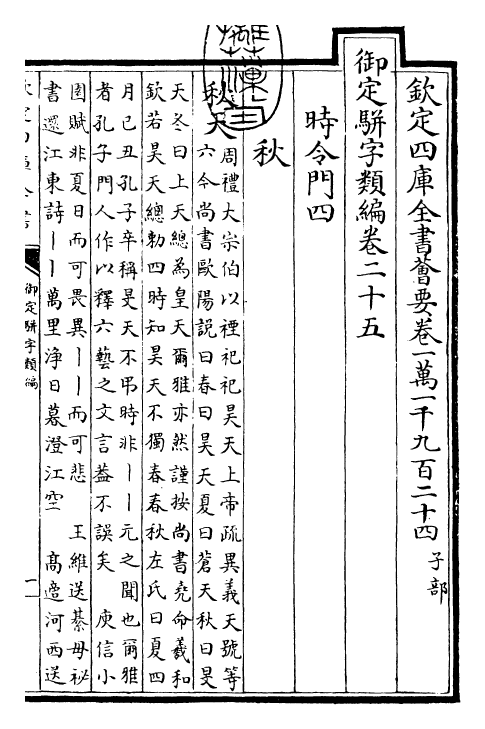 欽定四庫全書薈要卷一萬一千九百二十四 子部
御定駢字類編卷二十五
時令門四
秋
秋天
周禮大宗伯以禋祀祀昊天上帝疏異義天號等
六今尚書歐陽説曰春曰昊天夏曰蒼天秋曰旻
天冬曰上天總為皇天爾雅亦然謹按尚書堯命羲和
欽若昊天總勅四時知昊天不獨春春秋左氏曰夏四
月己丑孔子卒稱旻天不弔時非丨丨元之聞也爾雅
者孔子門人作以釋六藝之文言葢不誤矣 庾信小
園賦非夏日而可畏異丨丨而可悲 王維送綦毋祕
書還江東詩丨丨萬里淨日暮澄江空 髙適河西送
御定駢字類編
一